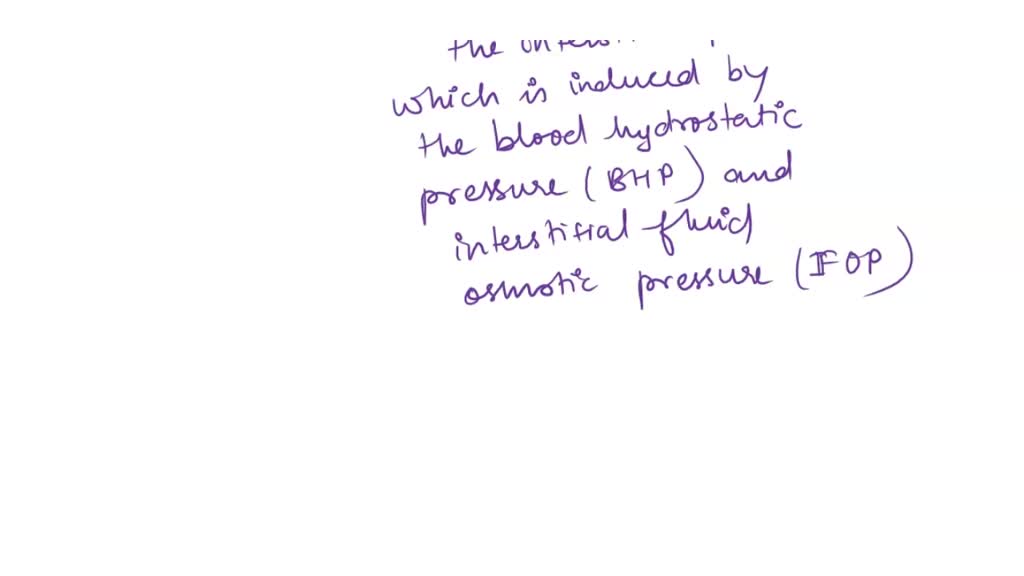 the
which is induced by
the blood hydrostatic
pressure (BHP) and
interstitial fluid
osmotic pressure (IFOP)